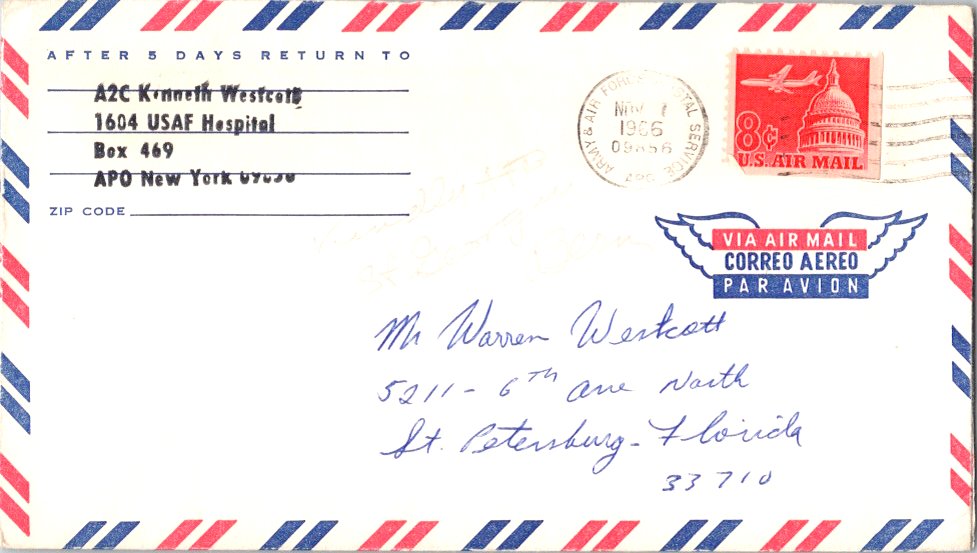 AFTER 5 DAYS RETURN TO
A2C Kenneth Westcott
1604 USAF Hospital
Box 469
APO New York
ZIP CODE
ARMY & AIR FORCE POSTAL SERVICE
NOV 7
1966
APO
8¢
U.S. AIR MAIL
VIA AIR MAIL
CORREO AEREO
PAR AVION
Mr Warren Westcott
5211 - 6th Ave North
St. Petersburg - Florida
33710